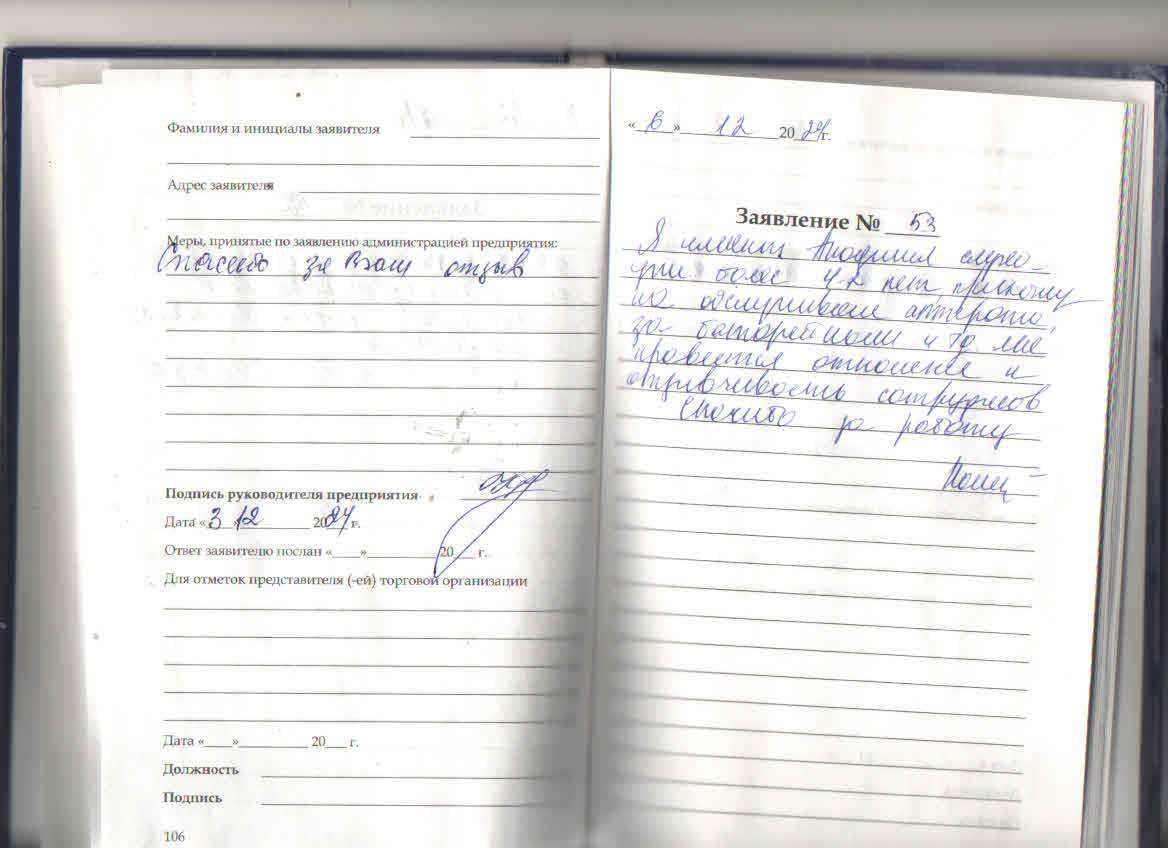 Фамилия и инициалы заявителя
Адрес заявителя
Меры, принятые по заявлению администрацией предприятия:
Спасибо за Ваш отзыв
Подпись руководителя предприятия
Дата «3» 12 2024 г.
Ответ заявителю послан «___»__________ 20___ г.
Для отметок представителя (-ей) торговой организации
Дата «___»__________ 20___ г.
Должность
Подпись
106
«6» 12 2024г.
Заявление № 53
Я клиент
более 4-х лет, прихожу
на обслуживание аппарата,
за батарейками и тд мне
нравится отношение и
отзывчивость сотрудников
спасибо за работу